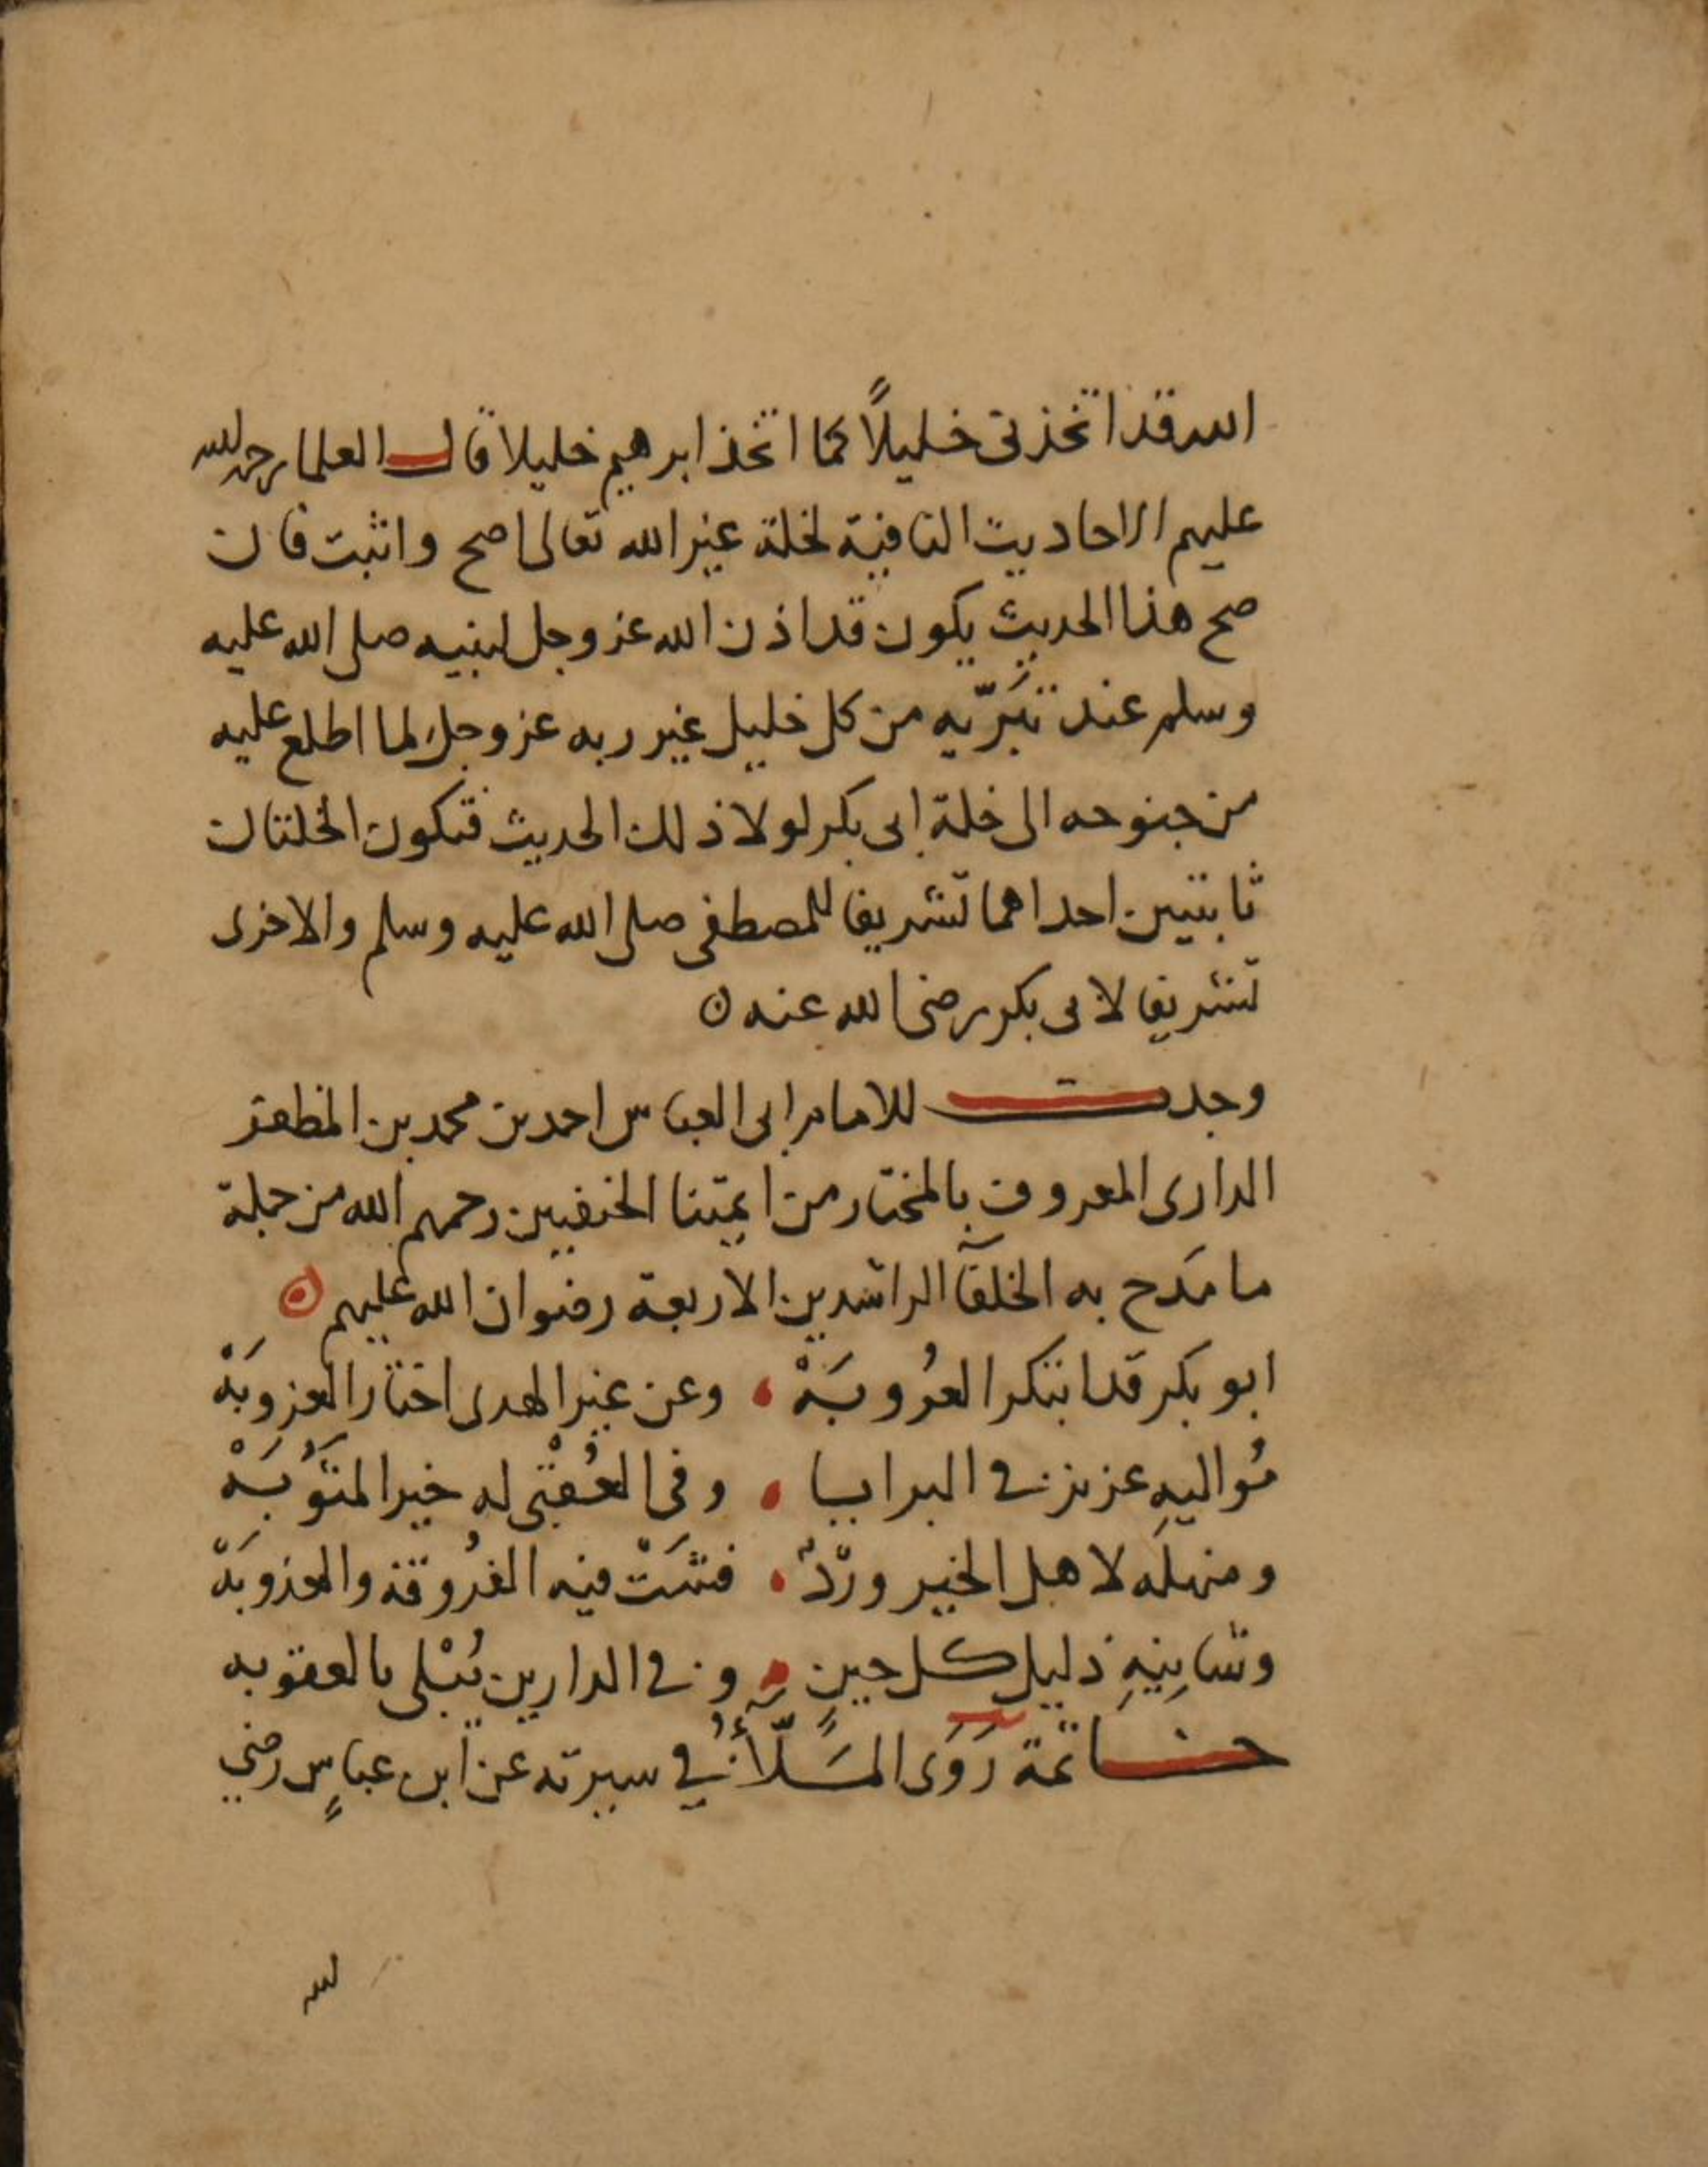 الله قد اتخذنى خليلاً كما اتخذ ابرهيم خليلا قال العلما رحمة الله
عليهم الاحاديث النافية لخلة غير الله تعالى اصح واثبت فان
صح هذا الحديث يكون قد اذن الله عز وجل لنبيه صلى الله عليه
وسلم عند تبَرّيه من كل خليل غير ربه عز وجل لما اطلع عليه
من جنوحه الى خلة ابى بكر لولا ذلك الحديث فتكون الخلتان
ثابتتين احداهما تشريفا للمصطفى صلى الله عليه وسلم والاخرى
تشريفا لابى بكر رضى الله عنه
وجدت للامام ابى العباس احمد بن محمد بن المظفر
الرازى المعروف بالمختار من ايمتنا الحنفيين رحمهم الله من جملة
ما مَدح به الخلفآ الراشدين الاربعة رضوان الله عليهم
ابو بكر قد ابتكر العُروبَهْ وعن غير الهدى اختار العزوبَهْ
مُواليهِ عزيز فى البرايا وفى العُقْبى له خير المثَوُبَهْ
ومنهلَه لاهل الخير وِرْدٌ فشَتْ فيه الفُروقة والعذوبَهْ
وشانِيهِ ذليل كل حينٍ وفى الدارين يُبْلى بالعقوبه
خاتمة رَوَى المَلّأُ في سيرته عن ابن عباسٍ رضي
لله